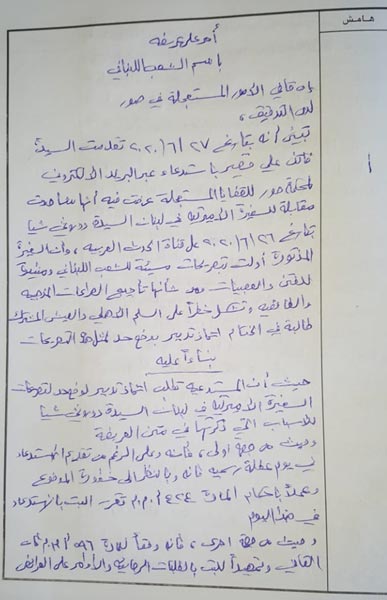 هامش
أمر على عريضة
باسم الشعب اللبناني
إن قاضي الأمور المستعجلة في صور
لدى التدقيق،
تبين أنه بتاريخ ٢٧/٦/٢٠٢٠ تقدمت السيدة
فاتن علي قصير باستدعاء عبر البريد الالكتروني
لمحكمة صور للقضايا المستعجلة عرضت فيه أنها شاهدت
مقابلة للسفيرة الأميركية في لبنان السيدة دوروثي شيا
بتاريخ ٢٦/٦/٢٠٢٠ على قناة الحدث العربية، وأن السفيرة
المذكورة أدلت بتصريحات مسيئة للشعب اللبناني ومشوقة
للفتن والعصبيات ومن شأنها تأجيج الصراعات المذهبية
والطائفية وتشكل خطراً على السلم الأهلي والعيش المشترك
طالبة في الختام اتخاذ تدبير بوضع حد لمثل هذه التصريحات
بناءً عليه
حيث أن المستدعية تطلب اتخاذ تدبير لوضع حد لتصريحات
السفيرة الأميركية في لبنان السيدة دوروثي شيا
للأسباب التي ذكرتها في متن العريضة
وحيث من جهة أولى، فإنه وعلى الرغم من تقديم الاستدعاء
في يوم عطلة رسمية فإنه وبالنظر إلى خطورة الموضوع
وعملاً بأحكام المادة ٤٢٤/أ.م.م. تقرر البت بالاستدعاء
في هذا اليوم
وحيث من جهة أخرى، فإنه وفقاً للمادة ٥٩٦/أ.م.م. فإن
القاضي وتمهيداً للبت بالطلبات الرجائية والأوامر على العرائض
أ